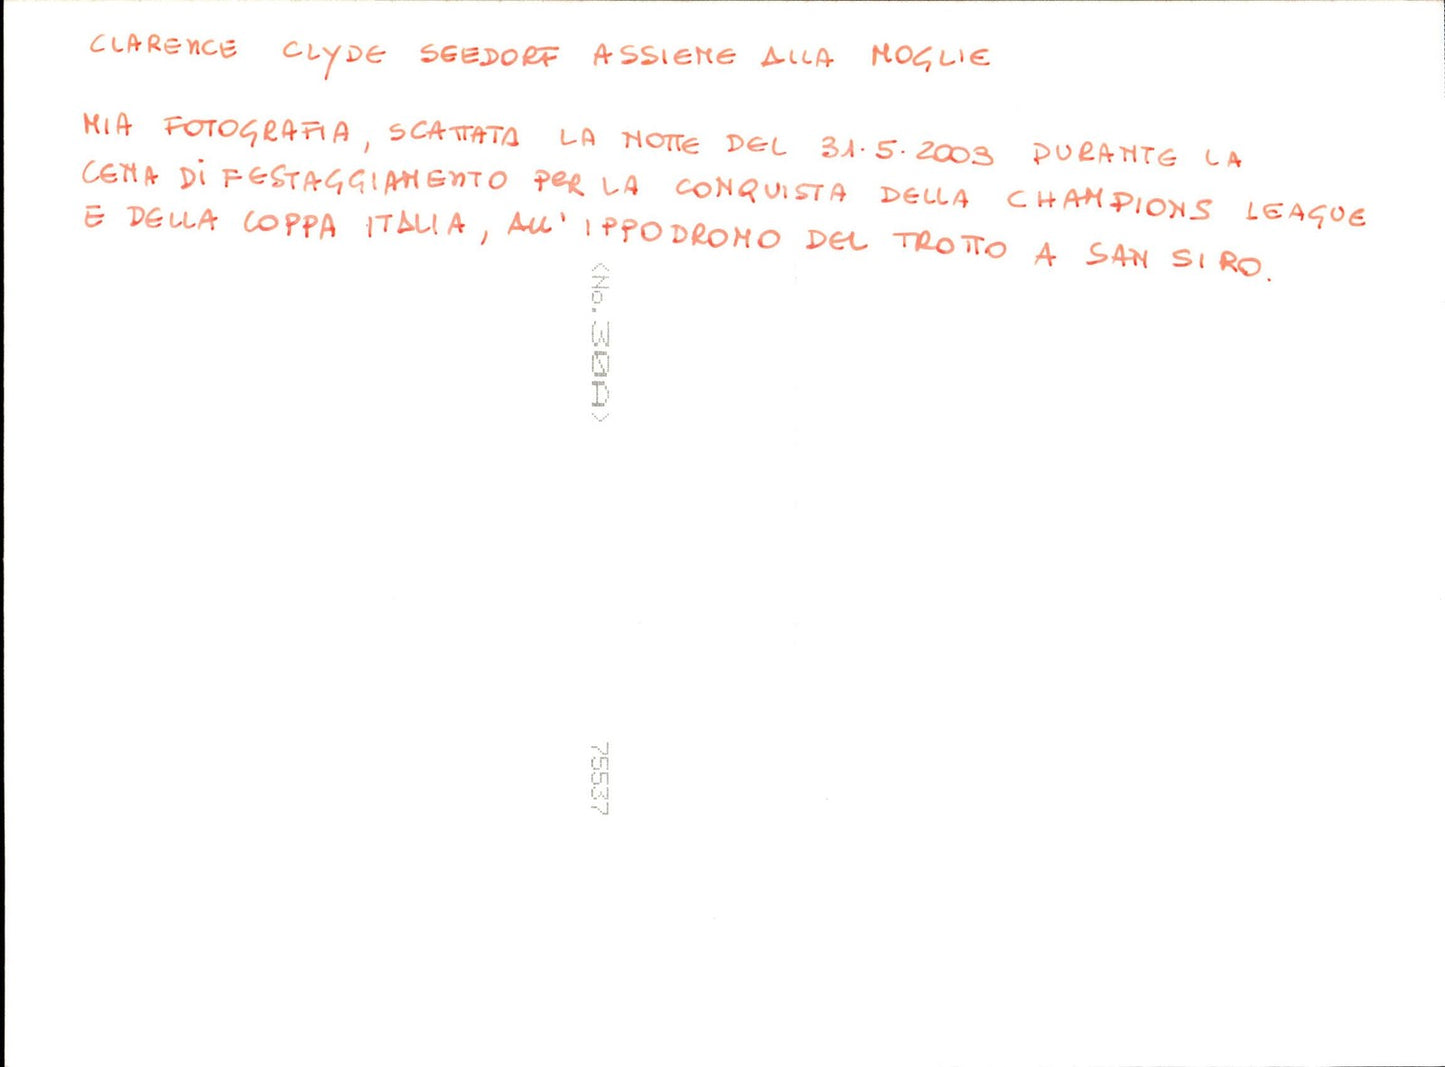 CLARENCE CLYDE SEEDORF ASSIEME ALLA MOGLIE
MIA FOTOGRAFIA, SCATTATA LA NOTTE DEL 31.5.2003 DURANTE LA
CENA DI FESTAGGIAMENTO PER LA CONQUISTA DELLA CHAMPIONS LEAGUE
E DELLA COPPA ITALIA, ALL' IPPODROMO DEL TROTTO A SAN SIRO.
<No.30A>
75537